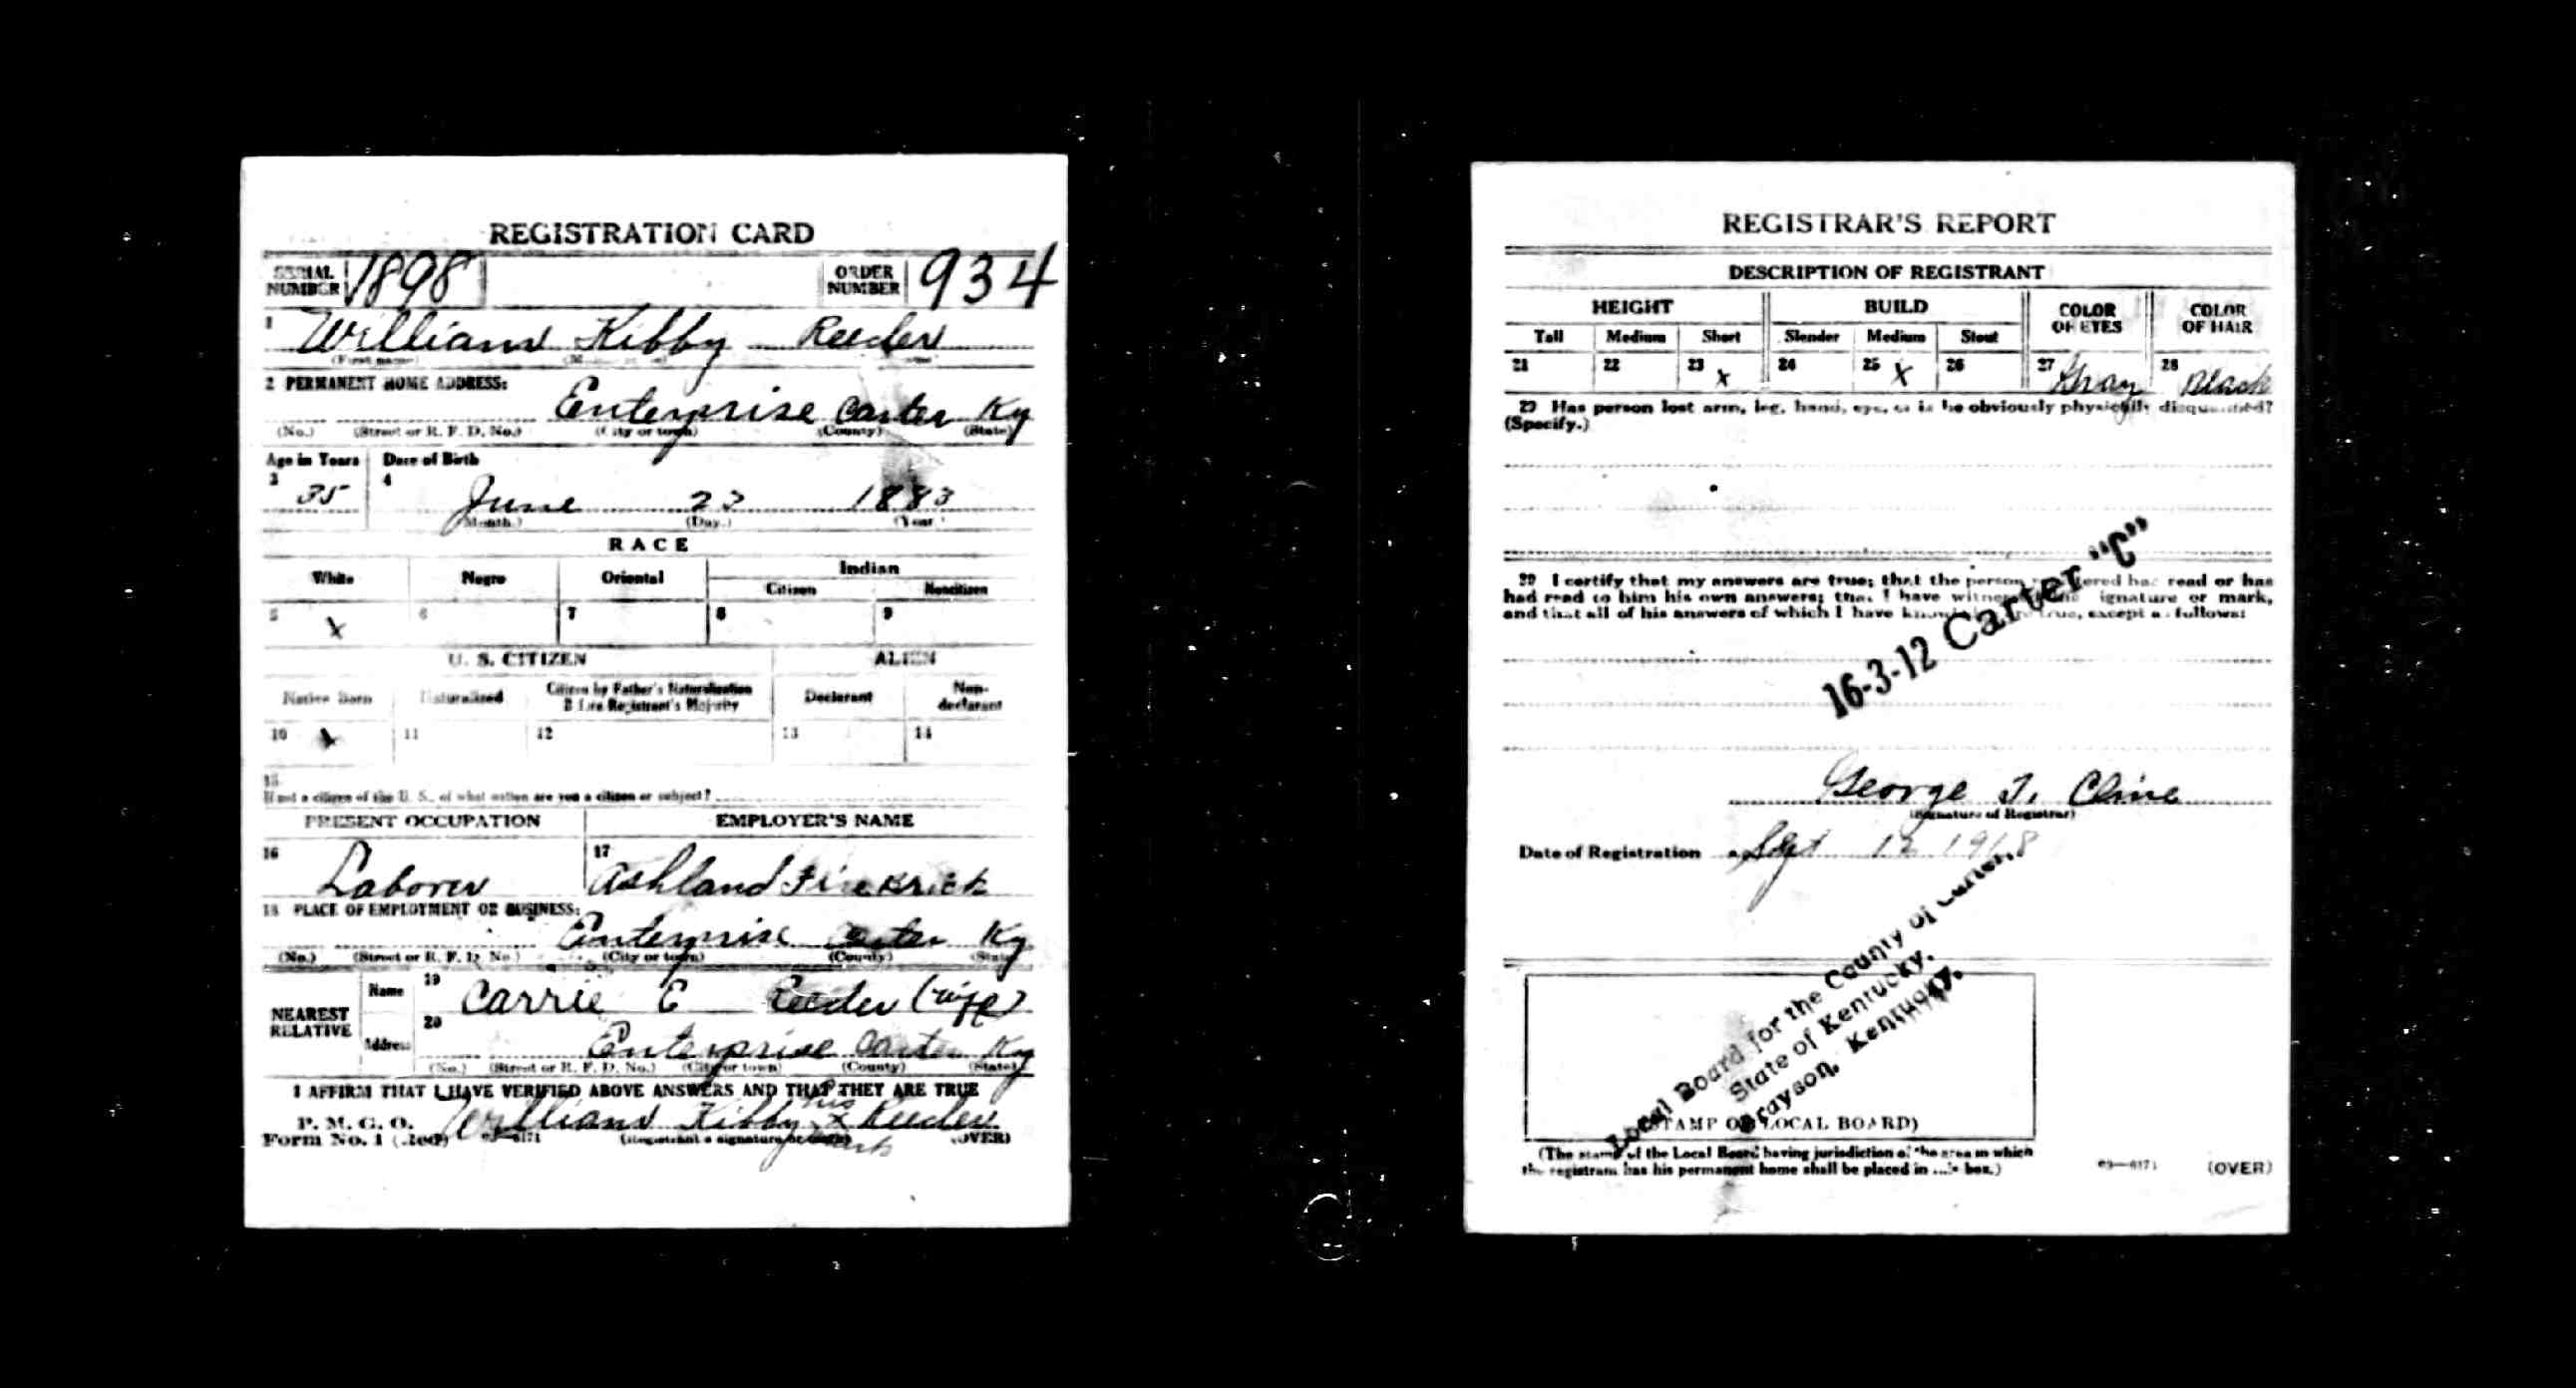 REGISTRATION CARD
SERIAL NUMBER 1898 ORDER NUMBER 934
1 William Kibby Reeder
(First name)
2 PERMANENT HOME ADDRESS:
Enterprise Carter Ky
(No.) (Street or R. F. D. No.) (City or town) (County) (State)
Age in Years Date of Birth
3 35 4 June 23 1883
(Month.) (Day.) (Year.)
RACE
White Negro Oriental Indian
Citizen Noncitizen
5 X 6 7 8 9
U. S. CITIZEN ALIEN
Native Born Naturalized Citizen by Father's Naturalization Before Registrant's Majority Declarant Non-declarant
10 X 11 12 13 14
15
If not a citizen of the U. S., of what nation are you a citizen or subject?
PRESENT OCCUPATION EMPLOYER'S NAME
16 Laborer 17 Ashland Fire Brick
18 PLACE OF EMPLOYMENT OR BUSINESS:
Enterprise Carter Ky
(No.) (Street or R. F. D. No.) (City or town) (County) (State)
NEAREST RELATIVE Name 19 Carrie E Reeder (wife)
Address 20 Enterprise Carter Ky
(No.) (Street or R. F. D. No.) (City or town) (County) (State)
I AFFIRM THAT I HAVE VERIFIED ABOVE ANSWERS AND THAT THEY ARE TRUE
P. M. G. O.
Form No. 1 (Red) William Kibby his X mark Reeder
03—6171 (Registrant's signature or mark) (OVER)
REGISTRAR'S REPORT
DESCRIPTION OF REGISTRANT
HEIGHT BUILD COLOR OF EYES COLOR OF HAIR
Tall Medium Short Slender Medium Stout
21 22 23 X 24 25 X 26 27 Gray 28 Black
29 Has person lost arm, leg, hand, eye, or is he obviously physically disqualified?
(Specify.)
30 I certify that my answers are true; that the person registered has read or has
had read to him his own answers; that I have witnessed his signature or mark,
and that all of his answers of which I have knowledge are true, except as follows:
16-3-12 Carter "C"
George T. Cline
(Signature of Registrar)
Date of Registration Sept 12 1918
Local Board for the County of Carter,
State of Kentucky.
Grayson, Kentucky.
(STAMP OF LOCAL BOARD)
(The stamp of the Local Board having jurisdiction of the area in which
the registrant has his permanent home shall be placed in this box.)
03—6171 (OVER)